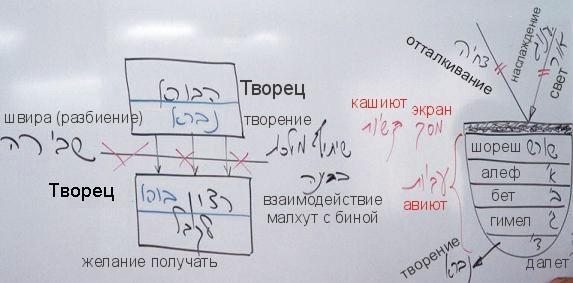 הבורא
Творец
נברא
творение
швира (разбиение)
שבירה
שיתוף מלכות
בבינה
взаимодействие
малхут с биной
Творец
רצון
לקבל
желание получать
отталкивание
דחיה
наслаждение
תענוג
свет
אור
кашиют
קשיות
экран
מסך
шореш שורש
алеф א'
бет ב
гимел ג
ד'
далет
עביות
авиют
творение
נברא